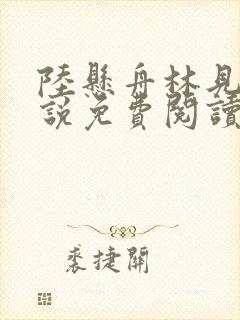 陸懸舟林見
說免費閱讀
裘捷開